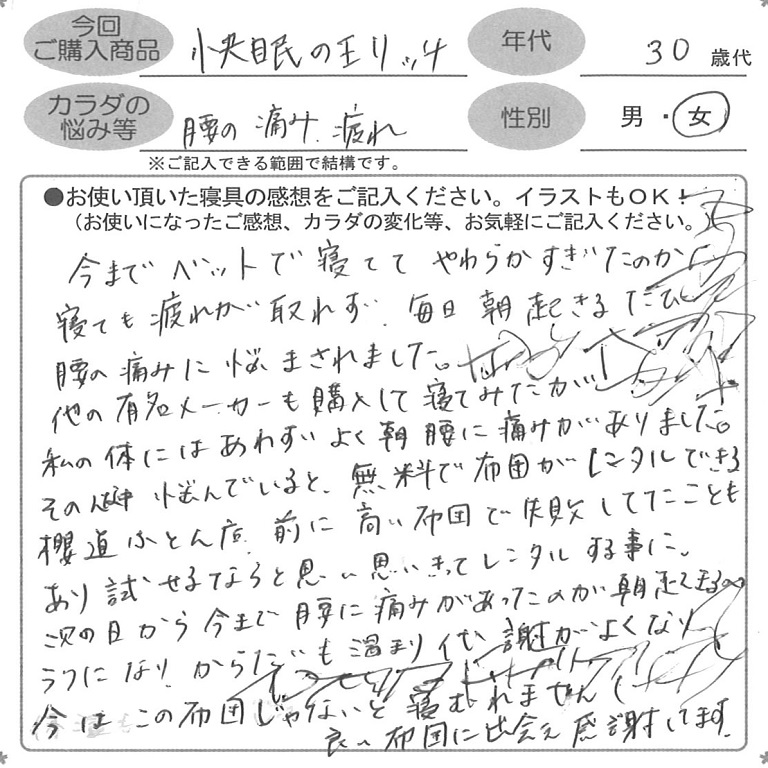 今回
ご購入商品
快眠の王リッチ
年代
30 歳代
カラダの
悩み等
腰の痛み.疲れ
性別
男・女
※ご記入できる範囲で結構です。
●お使い頂いた寝具の感想をご記入ください。イラストもOK!
(お使いになったご感想、カラダの変化等、お気軽にご記入ください。)
今まで ベットで寝てて やわらかすぎたのか
寝ても疲れが取れず. 毎日 朝 起きるたび
腰の痛みに悩まされました。
他の有名メーカーも購入して寝てみたが
私の体にはあわずよく朝腰に痛みがありました。
その 悩んでいると、無料で布団がレンタルできる
櫻道ふとん店. 前に高い布団で失敗してたことも
あり試せるならと思い思いきってレンタルする事に。
次の日から今まで腰に痛みがあったのが朝起きるの
ラクになり. からだも温まり代謝がよくなり
今はこの布団じゃないと寝むれません(
良い布団に出会え感謝してます.